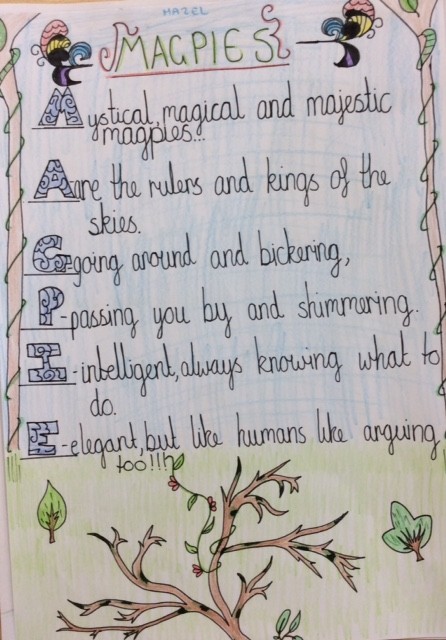 HAZEL
MAGPIES
Mystical, magical and majestic
magpies...
A-are the rulers and kings of the
skies.
G-going around and bickering,
P-passing you by and shimmering.
I-intelligent, always knowing what to
do.
E-elegant, but like humans like arguing
too!!!